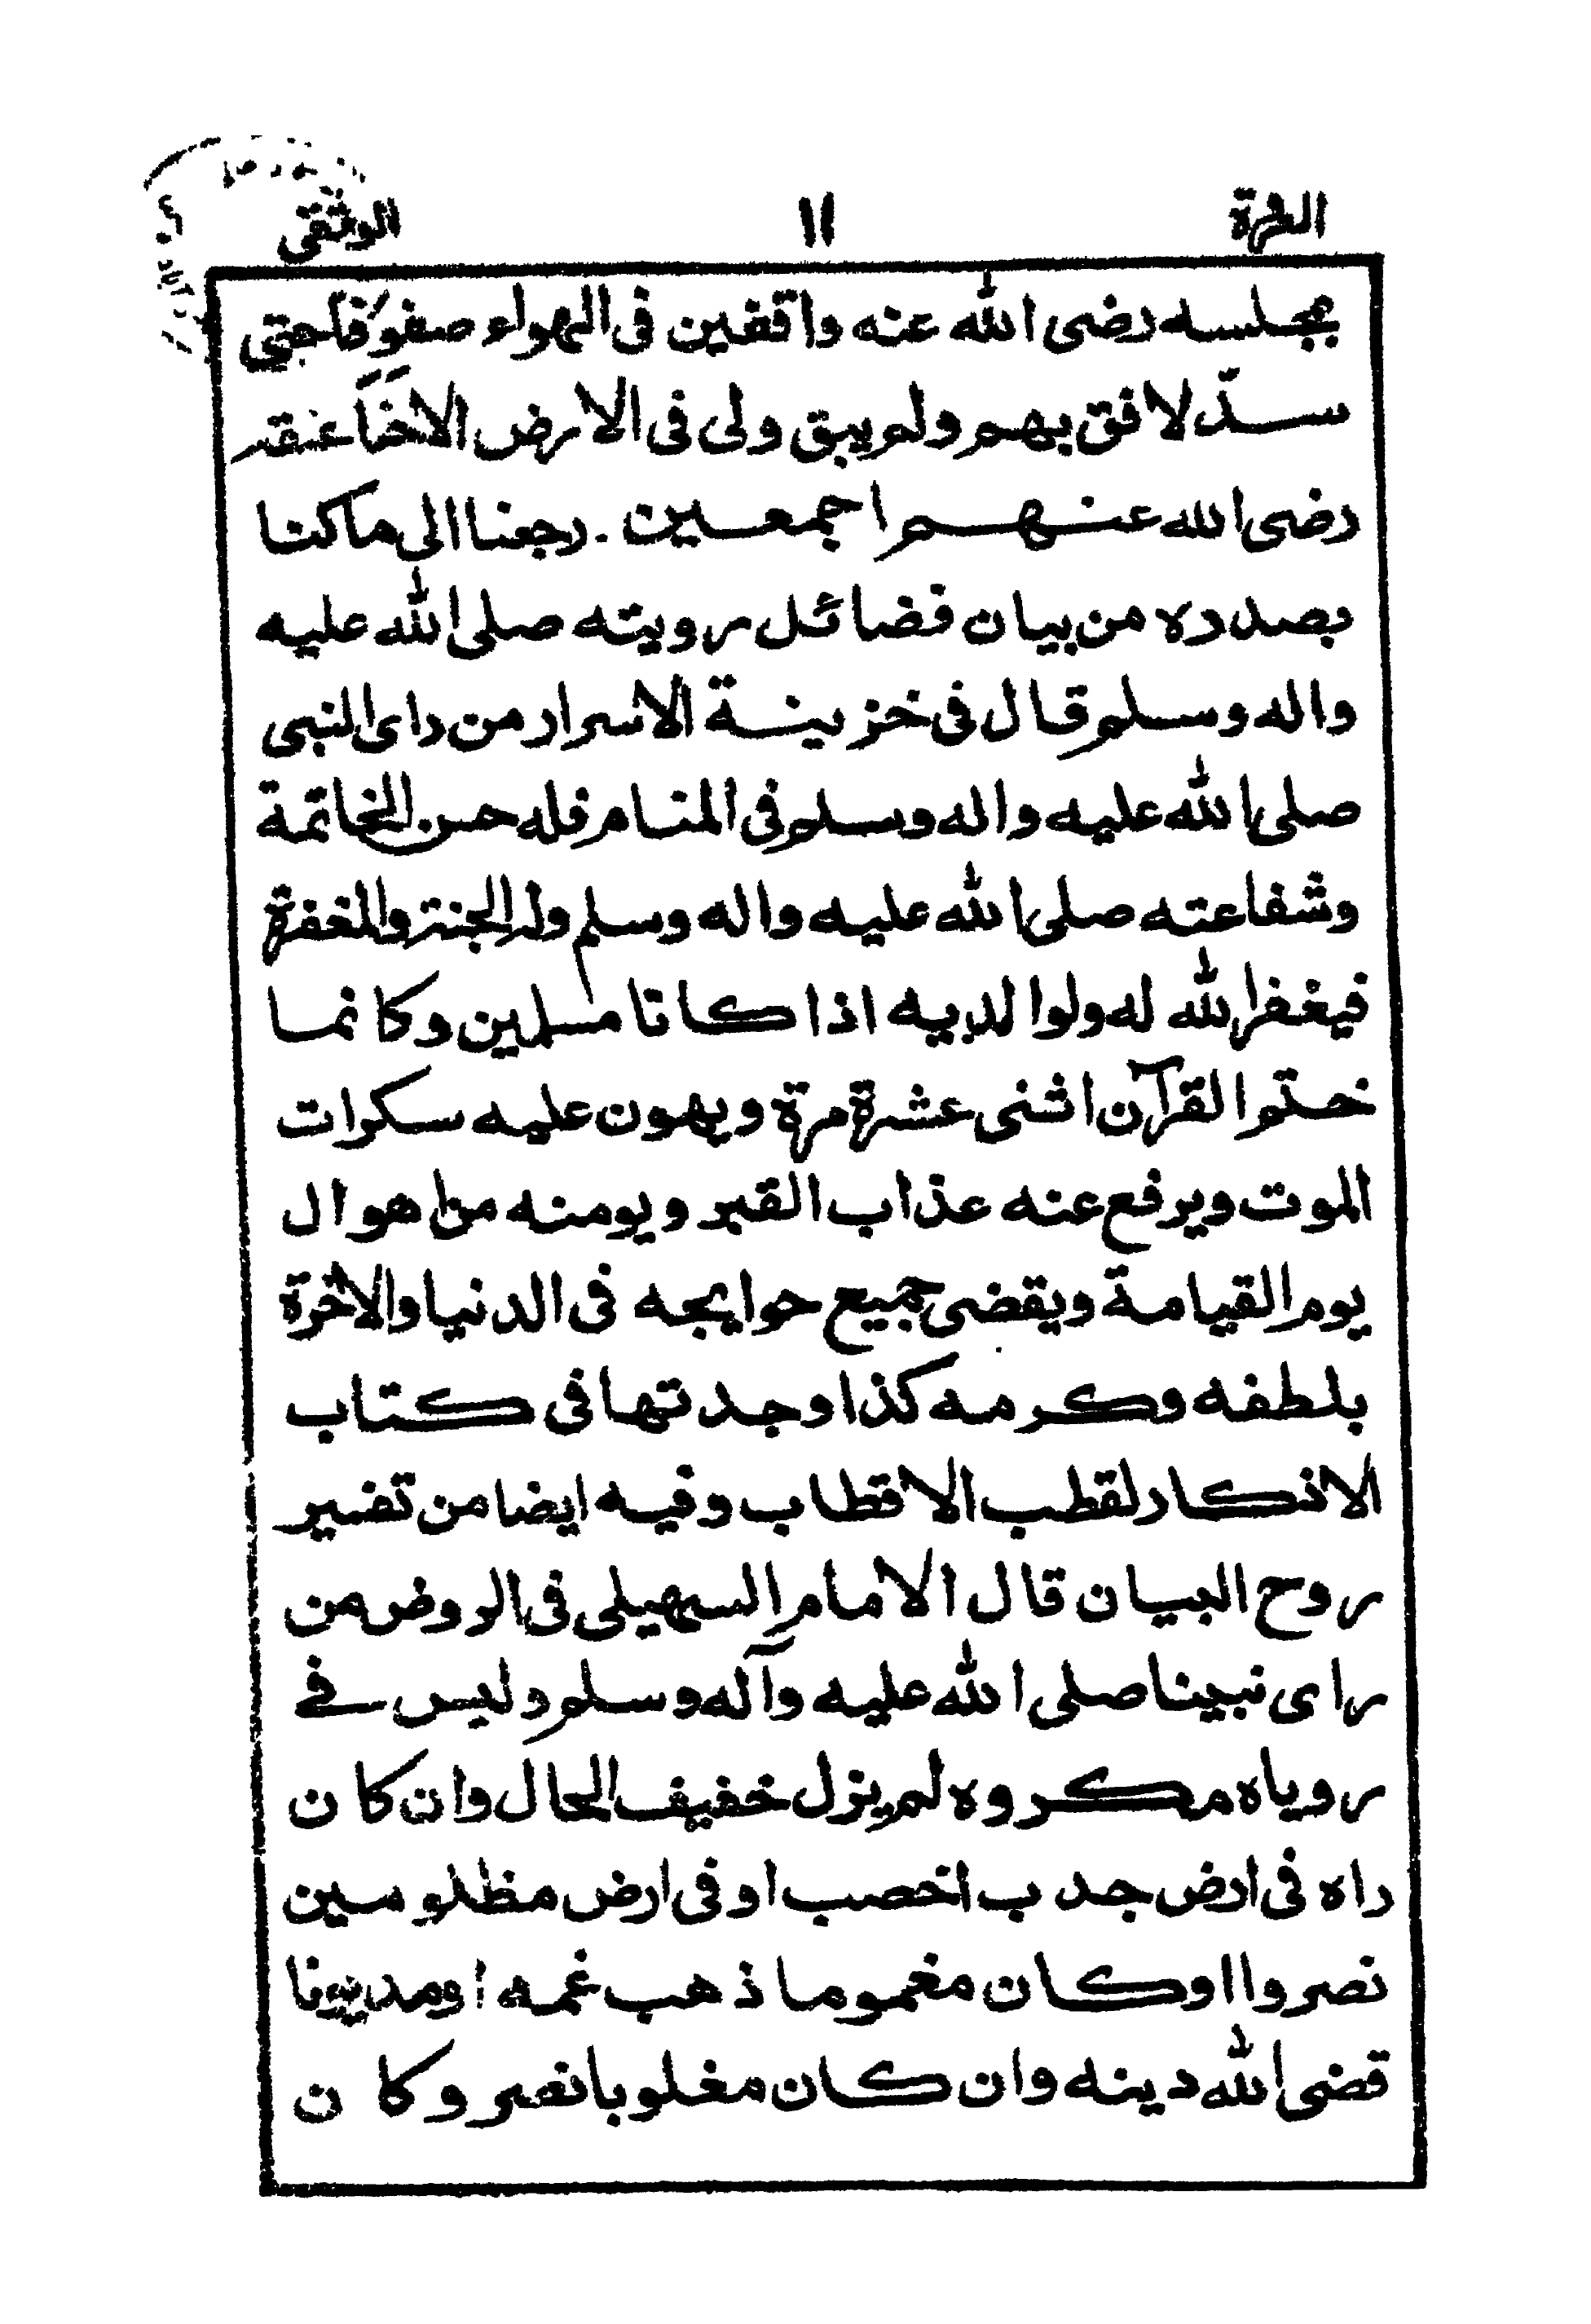 العروة ١١ الوثقى
مجلسه رضى الله عنه واقفين فى الهواء صفوفا حتى
سدّ لافق بهم ولم يبق ولى فى الارض الاخنا عنقه
رضى الله عنهم اجمعين . رجعنا الى ما كنا
بصدده من بيان فضائل رويته صلى الله عليه
واله وسلم قال فى خزينة الاسرار من راى النبى
صلى الله عليه واله وسلم فى المنام فله حسن الخاتمة
وشفاعته صلى الله عليه واله وسلم وله الجنة والمغفرة
فيغفر الله له ولوالديه اذا كانا مسلمين وكانما
ختم القرآن اثنى عشرة مرة ويهون عليه سكرات
الموت ويرفع عنه عذاب القبر ويومنه من اهوال
يوم القيامة ويقضى جميع حوايجه فى الدنيا والاخرة
بلطفه وكرمه كذا وجدتها فى كتاب
الاذكار لقطب الاقطاب وفيه ايضا من تفسير
روح البيان قال الامام السهيلى فى الروض من
راى نبينا صلى الله عليه وآله وسلم وليس فے
روياه مكروه لم يزل خفيف الحال وان كان
راه فى ارض جدب اخصب او فى ارض مظلومين
نصروا اوكان مغموما ذهب غمه اومديونا
قضى الله دينه وان كان مغلوبا نصر وكان